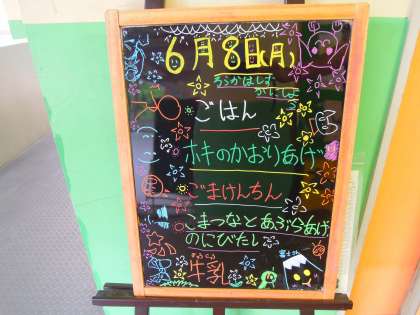 6月8日(月)
ろうかはしずかにしよう
ごはん
ホキのかおりあげ
ごまけんちん
こまつなとあぶらあげ
のにびたし
牛乳
富士山